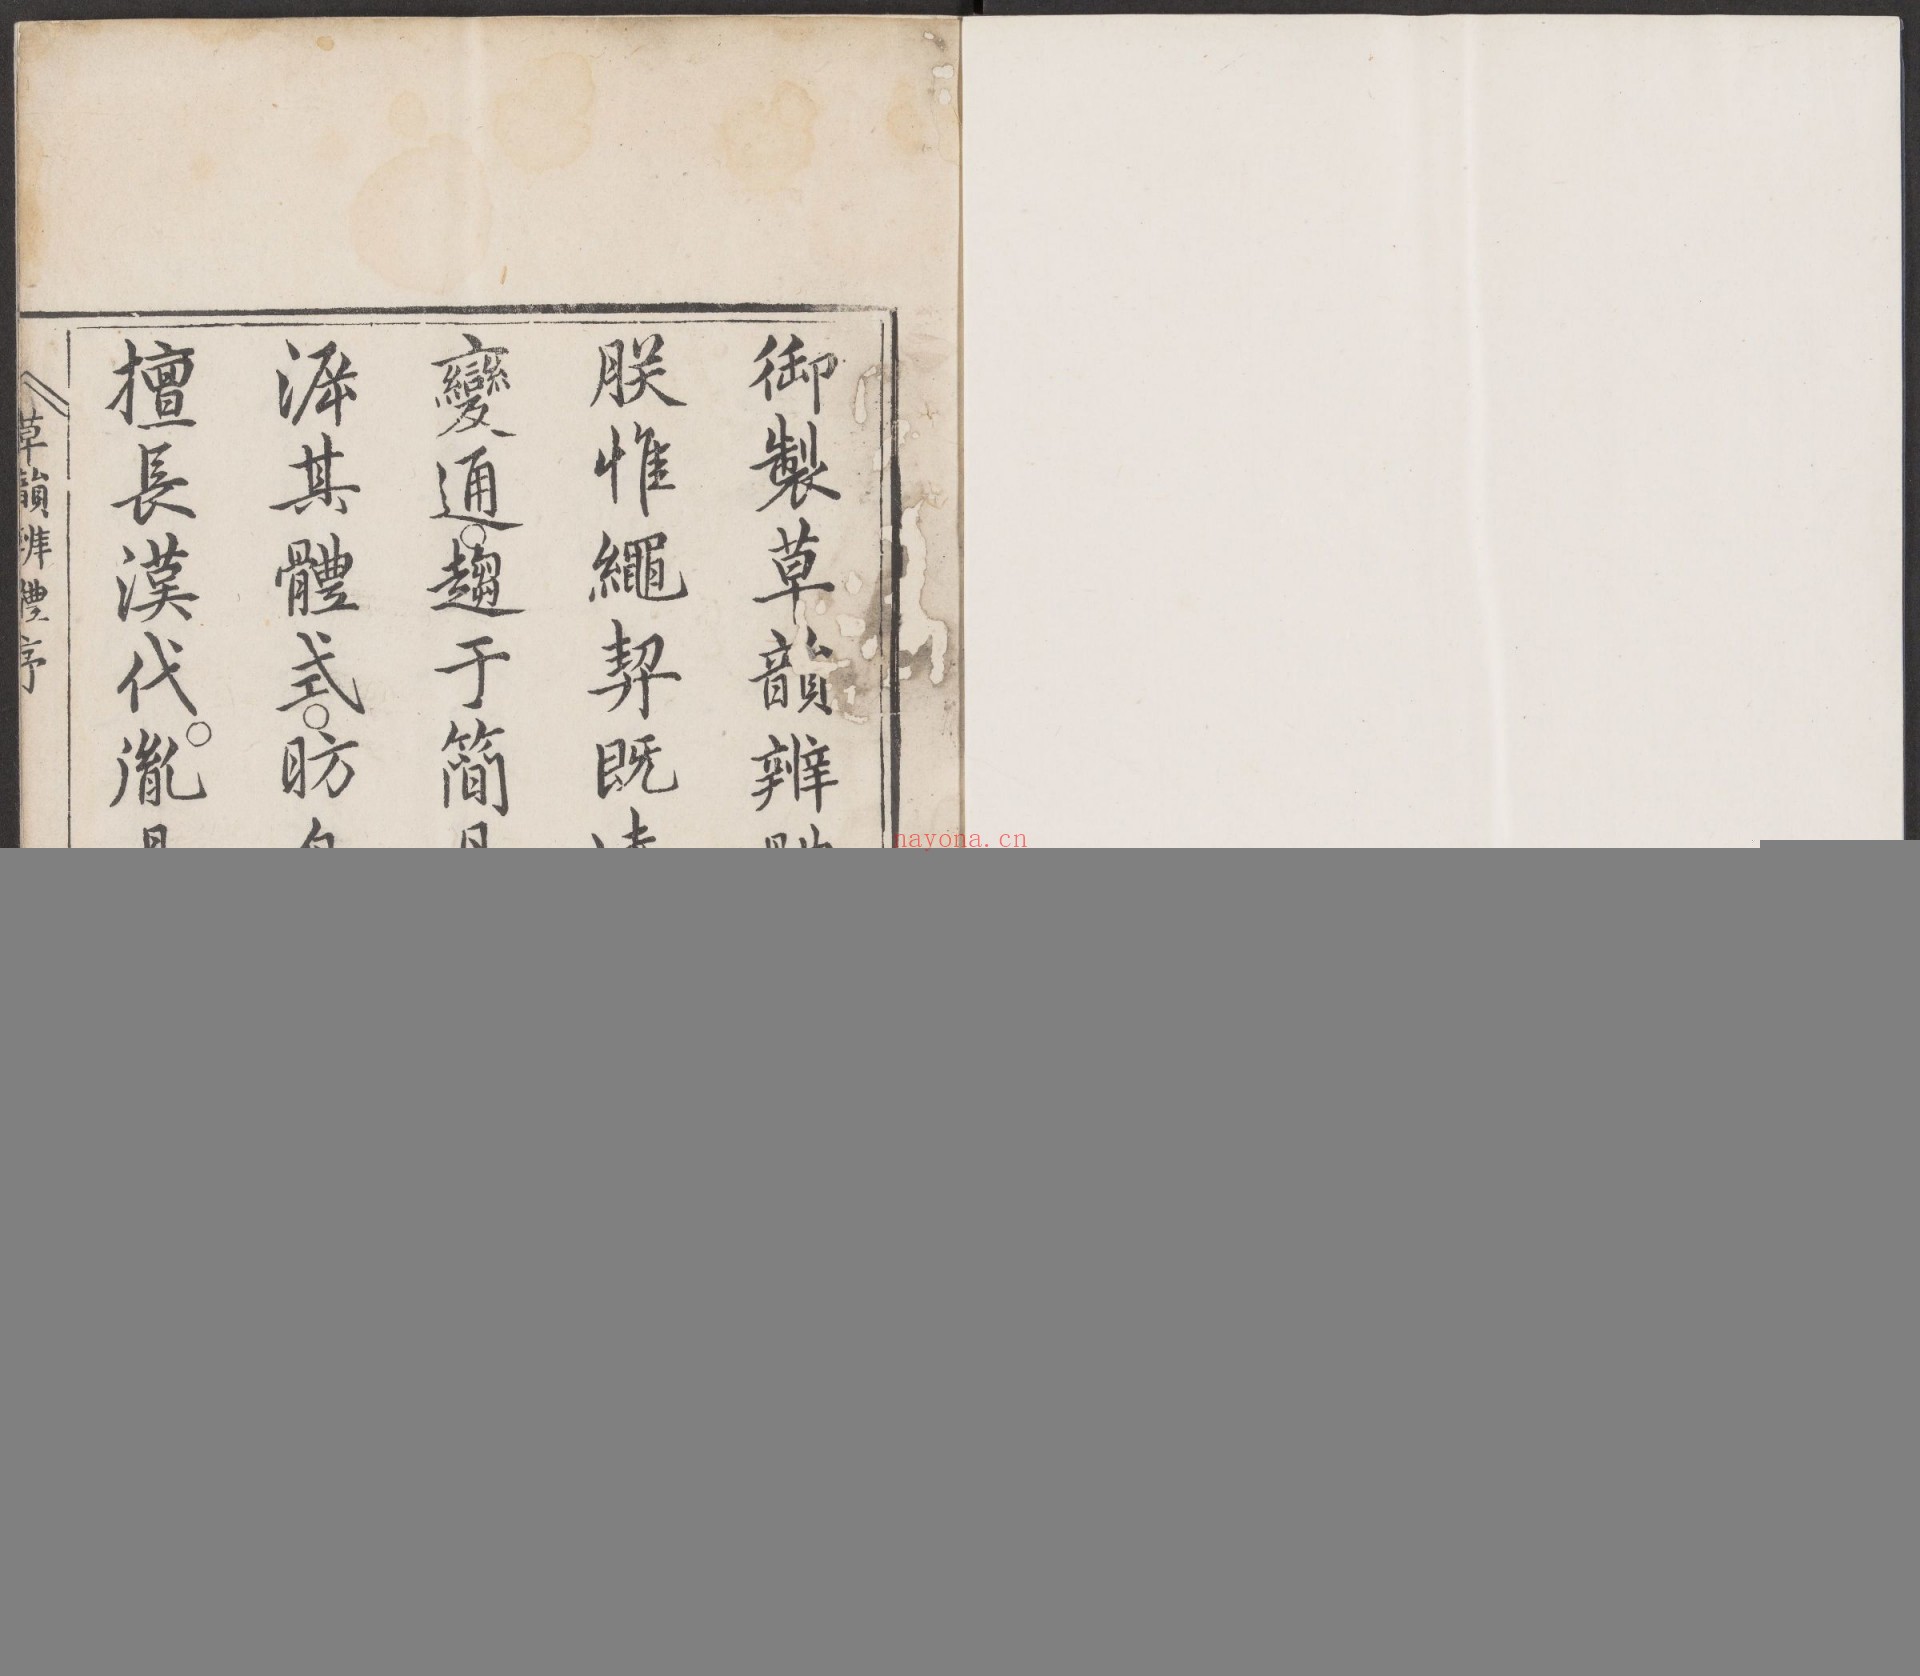 御製草韻辨
朕惟繩契既
變通。趨于簡
漄其體式。昉
擅長漢代。胤
草韻辨體序
nayona.cn